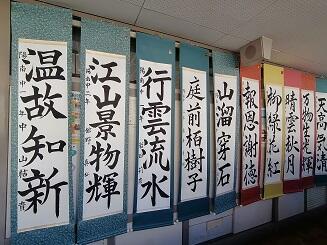 温故知新
江山景物輝
行雲流水
庭前栢樹子
山溜穿石
報恩謝徳
柳緑花紅
晴雲秋月
万物生光輝